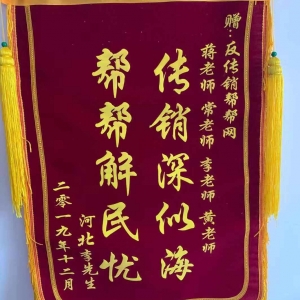 赠:反传销帮帮网
蒋老师 常老师 李老师 黄老师
传销深似海
帮帮解民忧
河北李先生
二零一九年十二月